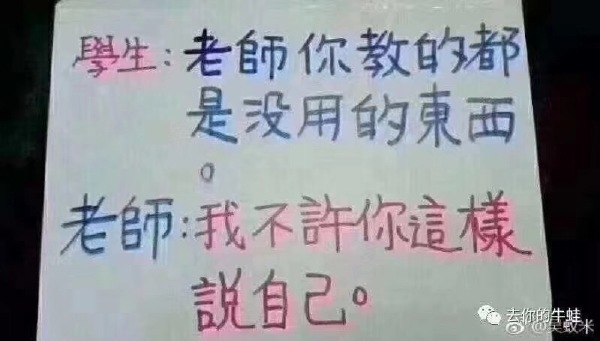 學生:老師你教的都
是没用的東西
。
老師:我不許你這樣
說自己。
去你的牛蛙